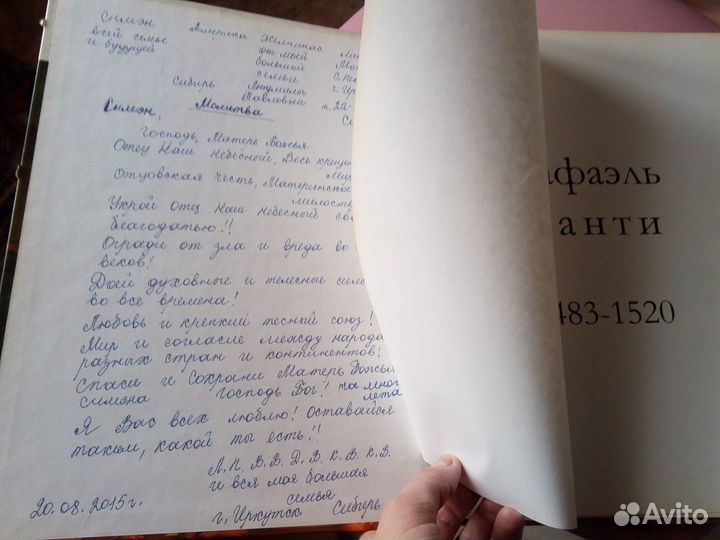 Симэн Америка
всей семье от мой
и будущей большой
семьи
Сибирь Людмилы г.
Павловны т.
Симэн, Молитва
Господь, Матерь Божья
Отец Наш Небесной, Весь
Отцовская честь, Материнское
милость
Укрой отец наш небесный
благодатью!!
Огради от зла и вреда во
веков!
Дай духовные и телесные
во все времена!
Любовь и крепкий тесный союз!
Мир и согласие между народа
разных стран и континентов!
Спаси и Сохрани Матерь Божья
Симэна Господь Бог! на мног
лета
Я Вас всех люблю! Оставайся
таким, какой ты есть!!
Л. П. В. В. Д. В. К. В. К. В.
и вся моя большая
семья
20.08.2015г. г. Иркутск Сибирь
афаэль
анти
483-1520
Avito